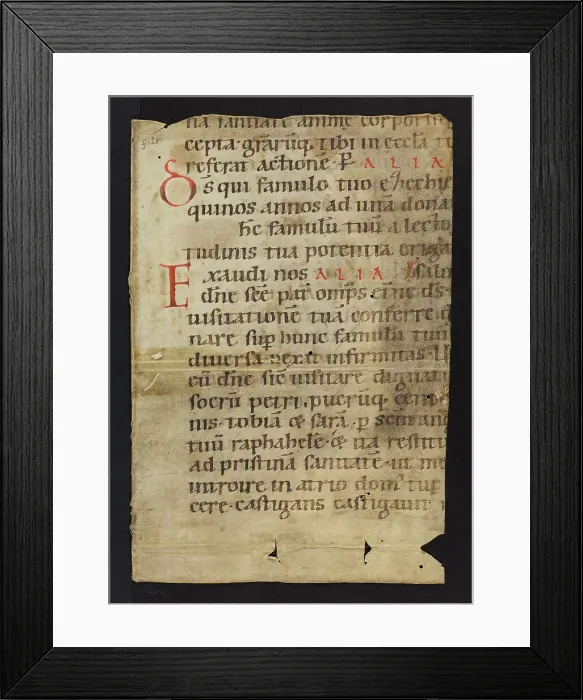 na sanitate anime corporisq
cepta grarūq. tibi in eccła t
referat actionē. P ALIA
Ds qui famulo tuo ezechie
quinos annos ad uitā dona
hc famulū tuū a lecto
tudinis tua potentia eriga
Exaudi nos ALIA salu
dn̄e sc̄e pat̄ omp̄s et̄ne ds
uisitationē tuā conferre d
nare sup hunc famulū tuū
diuersa uexat infirmitas
eū dn̄e sic uisitare dignar
socrū petri. puerūq. cent
nis. tobiā & sarā. p sc̄m an
tuū raphahelē. & ita restitu
ad pristinā sanitatē. in me
introire in atrio dom' tue
cere. castigans castigauit